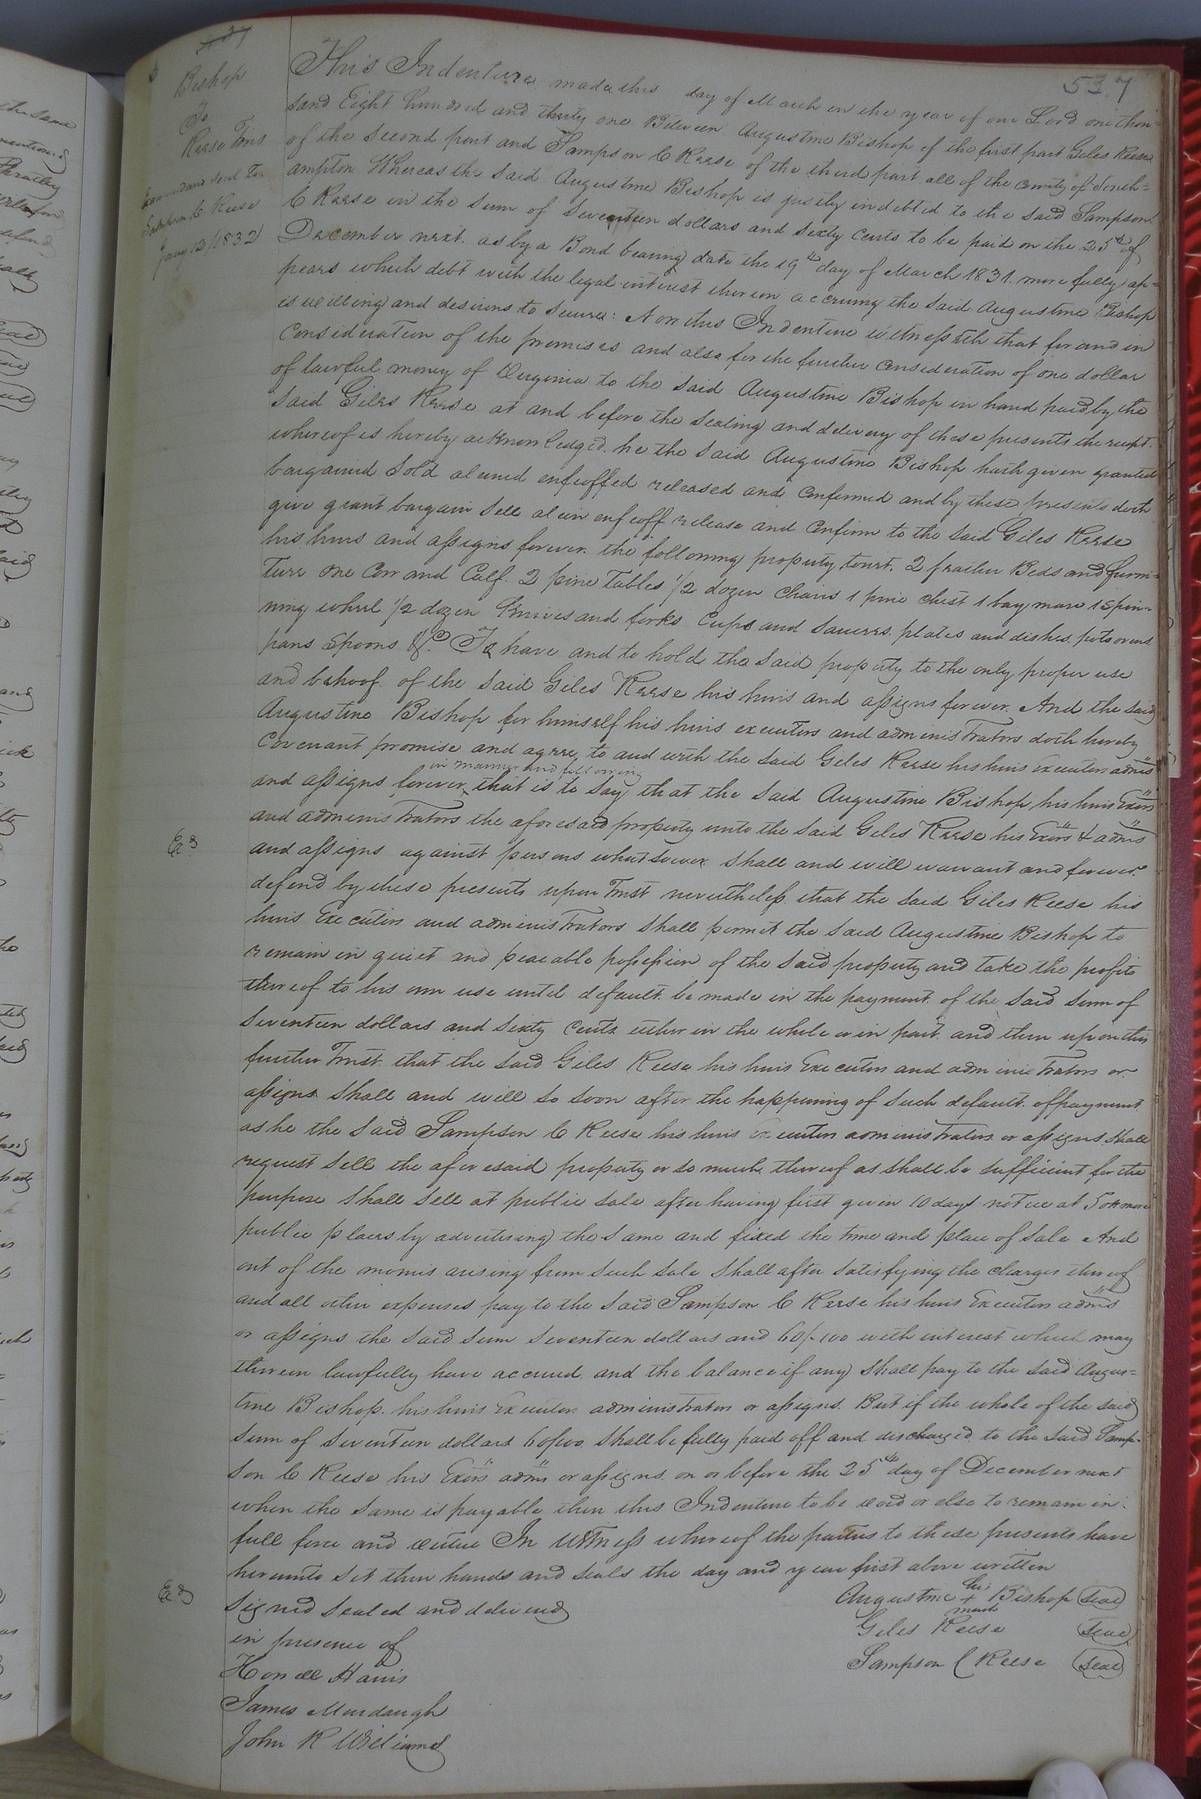 537
Bishop
To
Reese Trust
Examd and sent to
Sampson C Reese
Jany 12 1832
This Indenture made this day of March in the year of our Lord one thou=
sand Eight hundred and thirty one Between Augustine Bishop of the first part Giles Reese
of the second part and Sampson C Reese of the third part all of the county of South=
ampton Whereas the said Augustine Bishop is justly indebted to the said Sampson
C Reese in the sum of Seventeen dollars and sixty cents to be paid on the 25th of
December next. as by a Bond bearing date the 19th day of March 1831. more fully ap=
pears which debt with the legal interest thereon accruing the said Augustine Bishop
is willing and desirous to secure: Now this Indenture witnesseth that for and in
consideration of the premises and also for the further consideration of one dollar
of lawful money of Virginia to the said Augustine Bishop in hand paid by the
said Giles Reese at and before the sealing and delivery of these presents the receipt
whereof is hereby acknowledged. he the said Augustine Bishop hath given granted
bargained sold aliened enfeoffed released and confirmed and by these presents doth
give grant bargain sell alien enfeoff release and confirm to the said Giles Reese
his heirs and assigns forever the following property, towit. 2 feather Beds and furni=
ture One Cow and Calf. 2 pine Tables 1/2 dozen chairs 1 pine chest 1 bay mare 1 spin=
ning wheel 1/2 dozen knives and forks Cups and saucers. plates and dishes, pots ovens
pans spoons &c. To have and to hold the said property to the only proper use
and behoof of the said Giles Reese his heirs and assigns forever. And the said
Augustine Bishop for himself his heirs executors and administrators doth hereby
Covenant promise and agree, to and with the said Giles Reese his heirs Executors adms
in manner and following
and assigns forever, that is to say that the said Augustine Bishop, his heirs Exors
and administrators the aforesaid property unto the said Giles Reese his Exors & adms
and assigns against persons whatsoever shall and will warrant and forever
defend by these presents upon Trust nevertheless that the said Giles Reese his
heirs Executors and administrators shall permit the said Augustine Bishop to
remain in quiet and peaceable possession of the said property and take the profits
thereof to his own use until default be made in the payment of the said sum of
Seventeen dollars and sixty cents either in the whole or in part and then upon this
further Trust that the said Giles Reese his heirs Executors and administrators or
assigns shall and will so soon after the happening of such default of payment
as he the said Sampson C Reese his heirs executors administrators or assigns shall
request sell the aforesaid property or so much thereof as shall be sufficient for the
purpose shall sell at public sale after having first given 10 days notice at 5 or more
public places by advertising the same and fixed the time and place of sale And
out of the monies arising from such sale shall after satisfying the charges thereof
and all other expenses pay to the said Sampson C Reese his heirs Executors adms
or assigns the said sum seventeen dollars and 60/100 with interest which may
thereon lawfully have accrued and the balance if any shall pay to the said Augus=
tine Bishop. his heirs Executors administrators or assigns. But if the whole of the said
sum of seventeen dollars 60/100 shall be fully paid off and discharged to the said Samp=
son C Reese his Exors adms or assigns on or before the 25th day of December next
when the same is payable then this Indenture to be void or else to remain in
full force and virtue In Witness whereof the parties to these presents have
hereunto set their hands and seals the day and year first above written
Signed sealed and delivered
in presence of
Howell Harris
James Murdaugh
John R Williams
Augustine his + mark Bishop seal
Giles Reese seal
Sampson C Reese seal